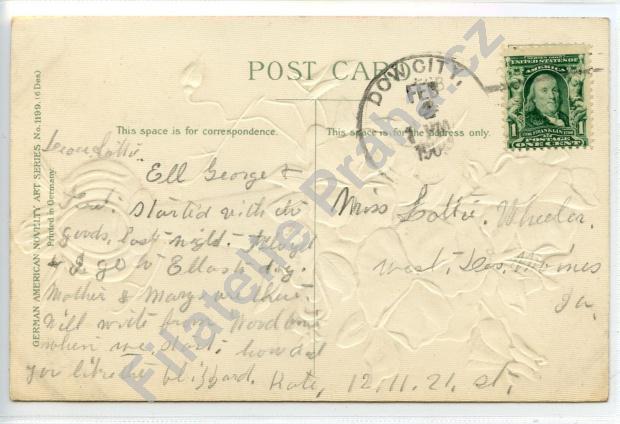 POST CARD
DOW CITY
FEB
190
SERIES 1902
UNITED STATES OF AMERICA
1 FRANKLIN 1
POSTAGE
ONE CENT
This space is for correspondence.
This space is for the address only.
GERMAN AMERICAN NOVELTY ART SERIES No. 1199. (6 Des)
Printed in Germany
Ell George &
started with the
goods, last night.
& I go to Ellas to day.
Mother & Mary are there.
Will write from Woodbine
when we start. how did
you like the blizzard. Kate, 12.11.21. st.
Miss Lottie. Wheeler.
West. Des. Moines
Ia.
Filatelie Praha.cz